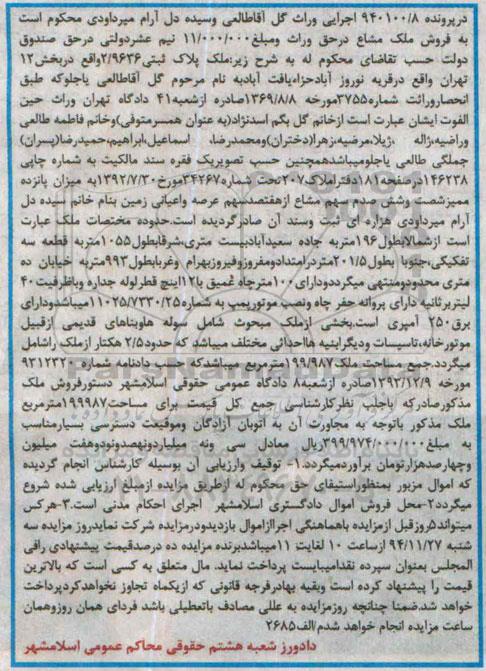 درپرونده ۹۴۰۱۰۰/۸ اجرایی وراث گل آقاطالعی وسیده دل آرام میرداودی محکوم است
به فروش ملک مشاع درحق وراث ومبلغ۱۱/۰۰۰/۰۰۰ نیم عشردولتی درحق صندوق
دولت حسب تقاضای محکوم له به شرح زیر:ملک پلاک ثبتی۲/۹۶۳۶واقع دربخش۱۲
تهران واقع درقریه نوروز آبادحزاءیافت آبادبه نام مرحوم گل آقاطالعی یاجلوکه طبق
انحصاروراثت شماره۳۷۵۵مورخه ۱۳۶۹/۸/۸صادره ازشعبه۴۱ دادگاه تهران وراث حین
الفوت ایشان عبارت است ازخانم گل بگم اسدنژاد(به عنوان همسرمتوفی)وخانم فاطمه طالعی
وراضیه،ژاله ،ژیلا،مرضیه،زهرا(دختران)ومحمدرضا، اسماعیل،ابراهیم،حمیدرضا(پسران)
جملگی طالعی یاجلومیباشدهمچنین حسب تصویریک فقره سند مالکیت به شماره چاپی
۱۴۶۲۳۸درصفحه۱۸دفتراملاک۲۰۷تحت شماره۳۴۲۶۷مورخ۱۳۹۲/۷/۳۰به میزان پانزده
ممیزشصت وشش صدم سهم مشاع ازهفتصدسهم عرصه واعیانی زمین بنام خانم سیده دل
آرام میرداودی هزاره ای ثبت وسند آن صادرگردیده است.حدوده مختصات ملک عبارت
است ازشمالابطول۱۹۶متربه جاده سعیدآبادبیست متری،شرقابطول۱۰۵۵متربه قطعه سه
تفکیکی،جنوبا بطول۲۰۱/۵متردرامتدادومفروزوفیروزبهرام وغربابطول۹۹۳متربه خیابان ده
متری محدودومنتهی میگرددودارای۱۰۰مترچاه عمیق با۱۲اینچ قطرلوله جداره وباظرفیت۴۰
لیتربرثانیه دارای پروانه حفر چاه ونصب موتورپمپ به شماره۱۱۰۲۵/۷۳۳۰/۲۵میباشدودارای
برق۲۵۰ آمپری است.بخشی ازملک مبحوث شامل سوله هاوبناهای قدیمی ازقبیل
موتورخانه،تاسیسات ودیگرابنیه هااحداثی مختلف میباشد که حدود۲/۵ هکتار ازملک راشامل
میگردد.جمع مساحت ملک۱۹۹/۹۸۷مترمربع میباشدکه حسب دادنامه شماره ۹۳۱۲۳۲۰
مورخه ۱۳۹۳/۱۲/۹صادره ازشعبه۸ دادگاه عمومی حقوقی اسلامشهر دستورفروش ملک
مذکورصادرکه باجلب نظرکارشناسی جمع کل قیمت برای مساحت۱۹۹۹۸۷مترمربع
ملک مذکور باتوجه به مجاورت آن به اتوبان آزادگان وموقعیت دسترسی بسیارمناسب
به مبلغ۳۹۹/۹۷۴/۰۰۰/۰۰۰ریال معادل سی ونه میلیاردونهصدونودوهفت میلیون
وچهارصدهزارتومان برآوردمیگردد.۱- توقیف وارزیابی آن بوسیله کارشناس انجام گردیده
که اموال مزبور بمنظوراستیفای حق محکوم له ازطریق مزایده ازمبلغ ارزیابی شده شروع
میگردد۲-محل فروش اموال دادگستری اسلامشهر اجرای احکام مدنی است.۳-هرکس
میتواند۵روزقبل ازمزایده باهماهنگی اجراازاموال بازدیدودرمزایده شرکت نمایدروز مزایده سه
شنبه ۹۴/۱۱/۲۷ ازساعت ۱۰ لغایت ۱۱میباشدبرنده مزایده ده درصدقیمت پیشنهادی رافی
المجلس بعنوان سپرده نقدامیبایست پرداخت نماید. مال متعلق به کسی است که بالاترین
قیمت را پیشنهاد کرده است وبقیه بهادرفرجه قانونی که ازیکماه تجاوز نخواهدکردپرداخت
خواهد شد.ضمنا چنانچه روزمزایده به عللی مصادف باتعطیلی باشد فردای همان روزوهمان
ساعت مزایده انجام خواهد شدم/الف۲۶۸۵
دادورز شعبه هشتم حقوقی محاکم عمومی اسلامشهر